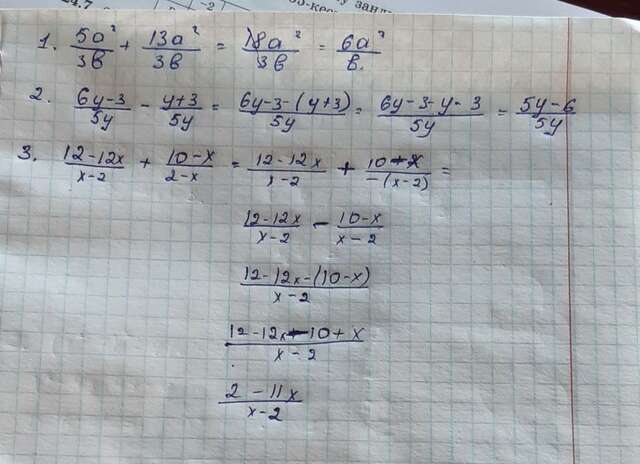 24.7
-2
1. 5a²/3в + 13a²/3в = 18a²/3в = 6a²/в.
2. 6y-3/5y - y+3/5y = 6y-3-(y+3)/5y = 6y-3-y-3/5y = 5y-6/5y
3. 12-12x/x-2 + 10-x/2-x = 12-12x/x-2 + 10-x/-(x-2) =
12-12x/x-2 - 10-x/x-2
12-12x-(10-x)/x-2
12-12x-10+x/x-2
2-11x/x-2